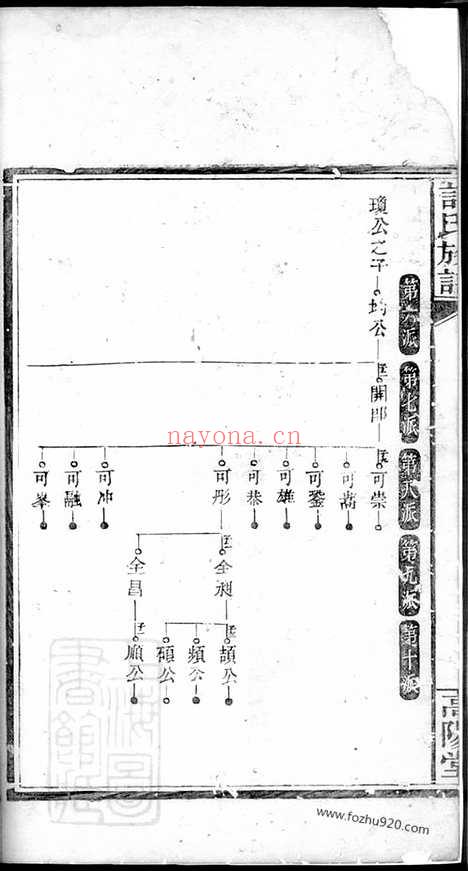 許氏族譜
高陽堂
第六派
第七派
第八派
第九派
第十派
瓊公之子
均公
開郎
可崇
可嵩
可鑒
可雄
可恭
可彤
可冲
可融
可峯
全昶
全昌
頡公
頫公
碩公
順公
nayona.cn
www.fozhu920.com